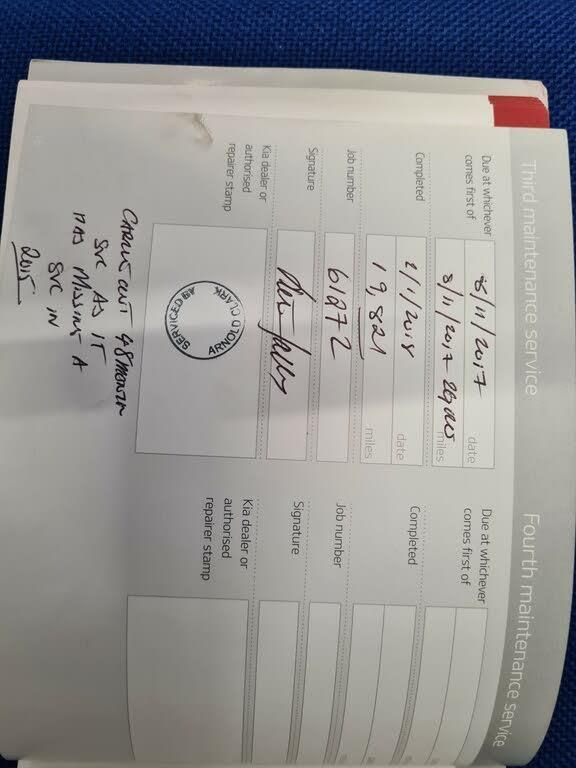 Third maintenance service
Due at whichever comes first of
8/11/2017 date
8/11/2017 miles
Completed
2/1/2018 date
19,821 miles
Job number
61272
Signature
Kia dealer or authorised repairer stamp
ARNOLD CLARK
SERVICED AB
OUT 48 MONTH
SVC AS IT
HAS MISSING A
SVC IN
2015
Fourth maintenance service
Due at whichever comes first of
Completed
Job number
Signature
Kia dealer or authorised repairer stamp